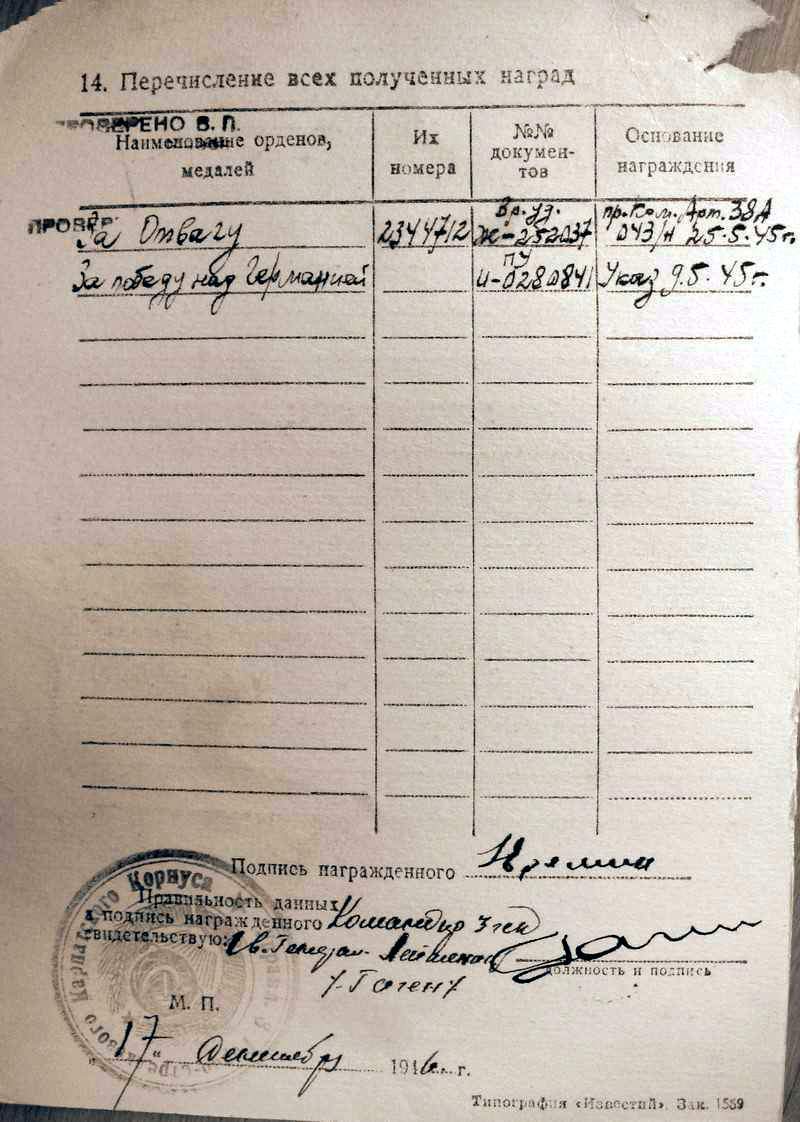 14. Перечисление всех полученных наград
ПРОВЕРЕНО В. П.
Наименование орденов, медалей
Их номера
№№ докумен-
тов
Основание награждения
ПРОВЕР
За Отвагу 2344712 Вр. уд. Ж-252037 пр. Ком. Арт. 38А 043/н 25.5.45г.
За победу над Германией ПУ И-0280841 Указ 9.5.45г.
Подпись награжденного
Правильность данных
и подпись награжденного Командир
свидетельствую: Гв. Генерал-
/-Гагену
должность и подпись
Карпатского Корпуса
М. П.
„17“ декабря 1946 г.
Типография «Известий». Зак. 1589